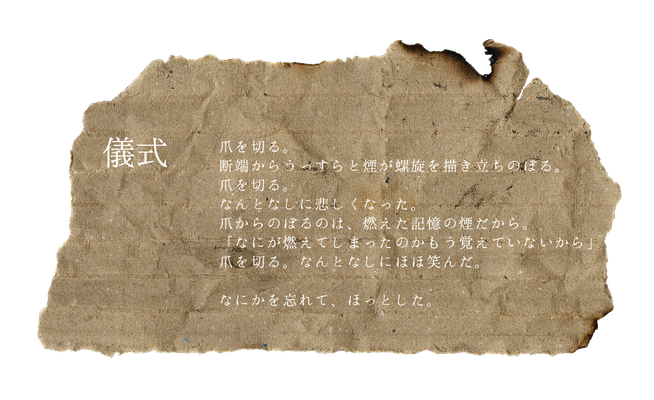 儀式
爪を切る。
断端からうっすらと煙が螺旋を描き立ちのぼる。
爪を切る。
なんとなしに悲しくなった。
爪からのぼるのは、燃えた記憶の煙だから。
「なにが燃えてしまったのかもう覚えていないから」
爪を切る。なんとなしにほほ笑んだ。
なにかを忘れて、ほっとした。